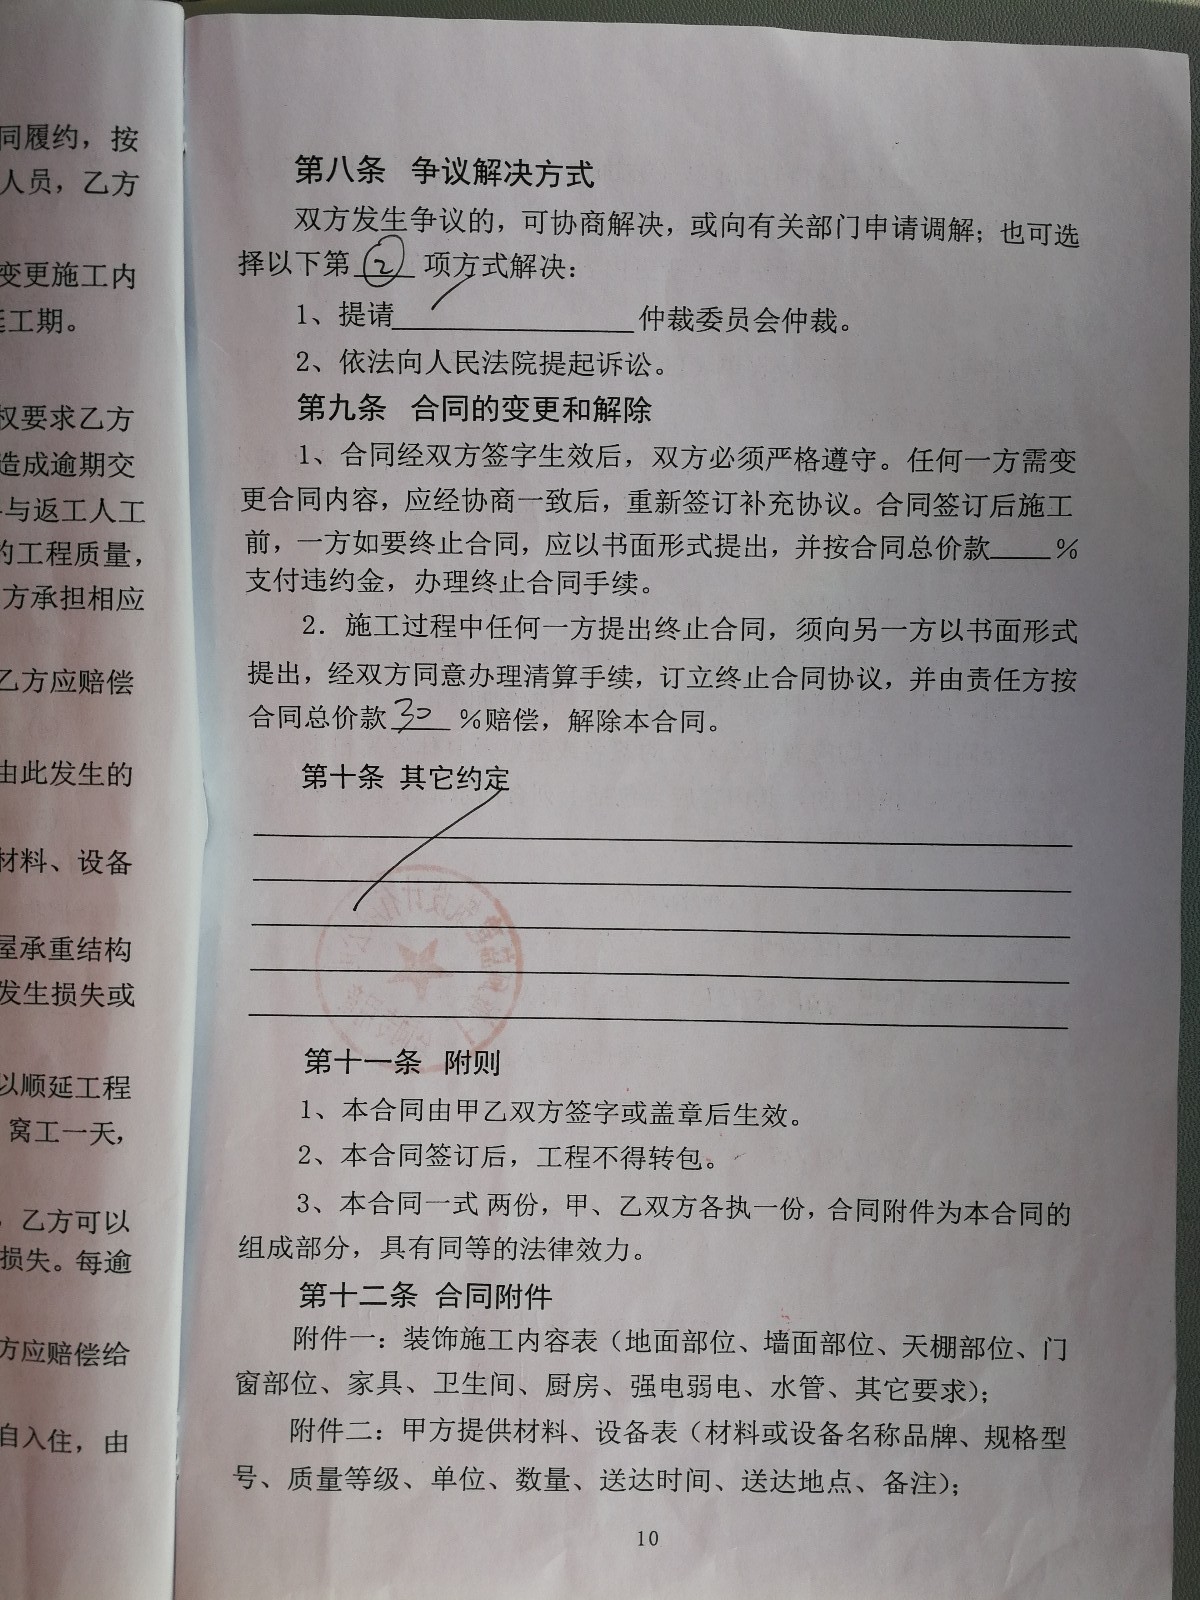 同履约，按
人员，乙方
变更施工内
工期。
权要求乙方
造成逾期交
与返工人工
的工程质量，
方承担相应
乙方应赔偿
由此发生的
材料、设备
屋承重结构
发生损失或
以顺延工程
窝工一天，
，乙方可以
损失。每逾
方应赔偿给
自入住，由
第八条 争议解决方式
双方发生争议的，可协商解决，或向有关部门申请调解；也可选
择以下第 ② 项方式解决：
1、提请________仲裁委员会仲裁。
2、依法向人民法院提起诉讼。
第九条 合同的变更和解除
1、合同经双方签字生效后，双方必须严格遵守。任何一方需变
更合同内容，应经协商一致后，重新签订补充协议。合同签订后施工
前，一方如要终止合同，应以书面形式提出，并按合同总价款____%
支付违约金，办理终止合同手续。
2．施工过程中任何一方提出终止合同，须向另一方以书面形式
提出，经双方同意办理清算手续，订立终止合同协议，并由责任方按
合同总价款 30 %赔偿，解除本合同。
第十条 其它约定
第十一条 附则
1、本合同由甲乙双方签字或盖章后生效。
2、本合同签订后，工程不得转包。
3、本合同一式 两份，甲、乙双方各执一份，合同附件为本合同的
组成部分，具有同等的法律效力。
第十二条 合同附件
附件一：装饰施工内容表（地面部位、墙面部位、天棚部位、门
窗部位、家具、卫生间、厨房、强电弱电、水管、其它要求）；
附件二：甲方提供材料、设备表（材料或设备名称品牌、规格型
号、质量等级、单位、数量、送达时间、送达地点、备注）；
10